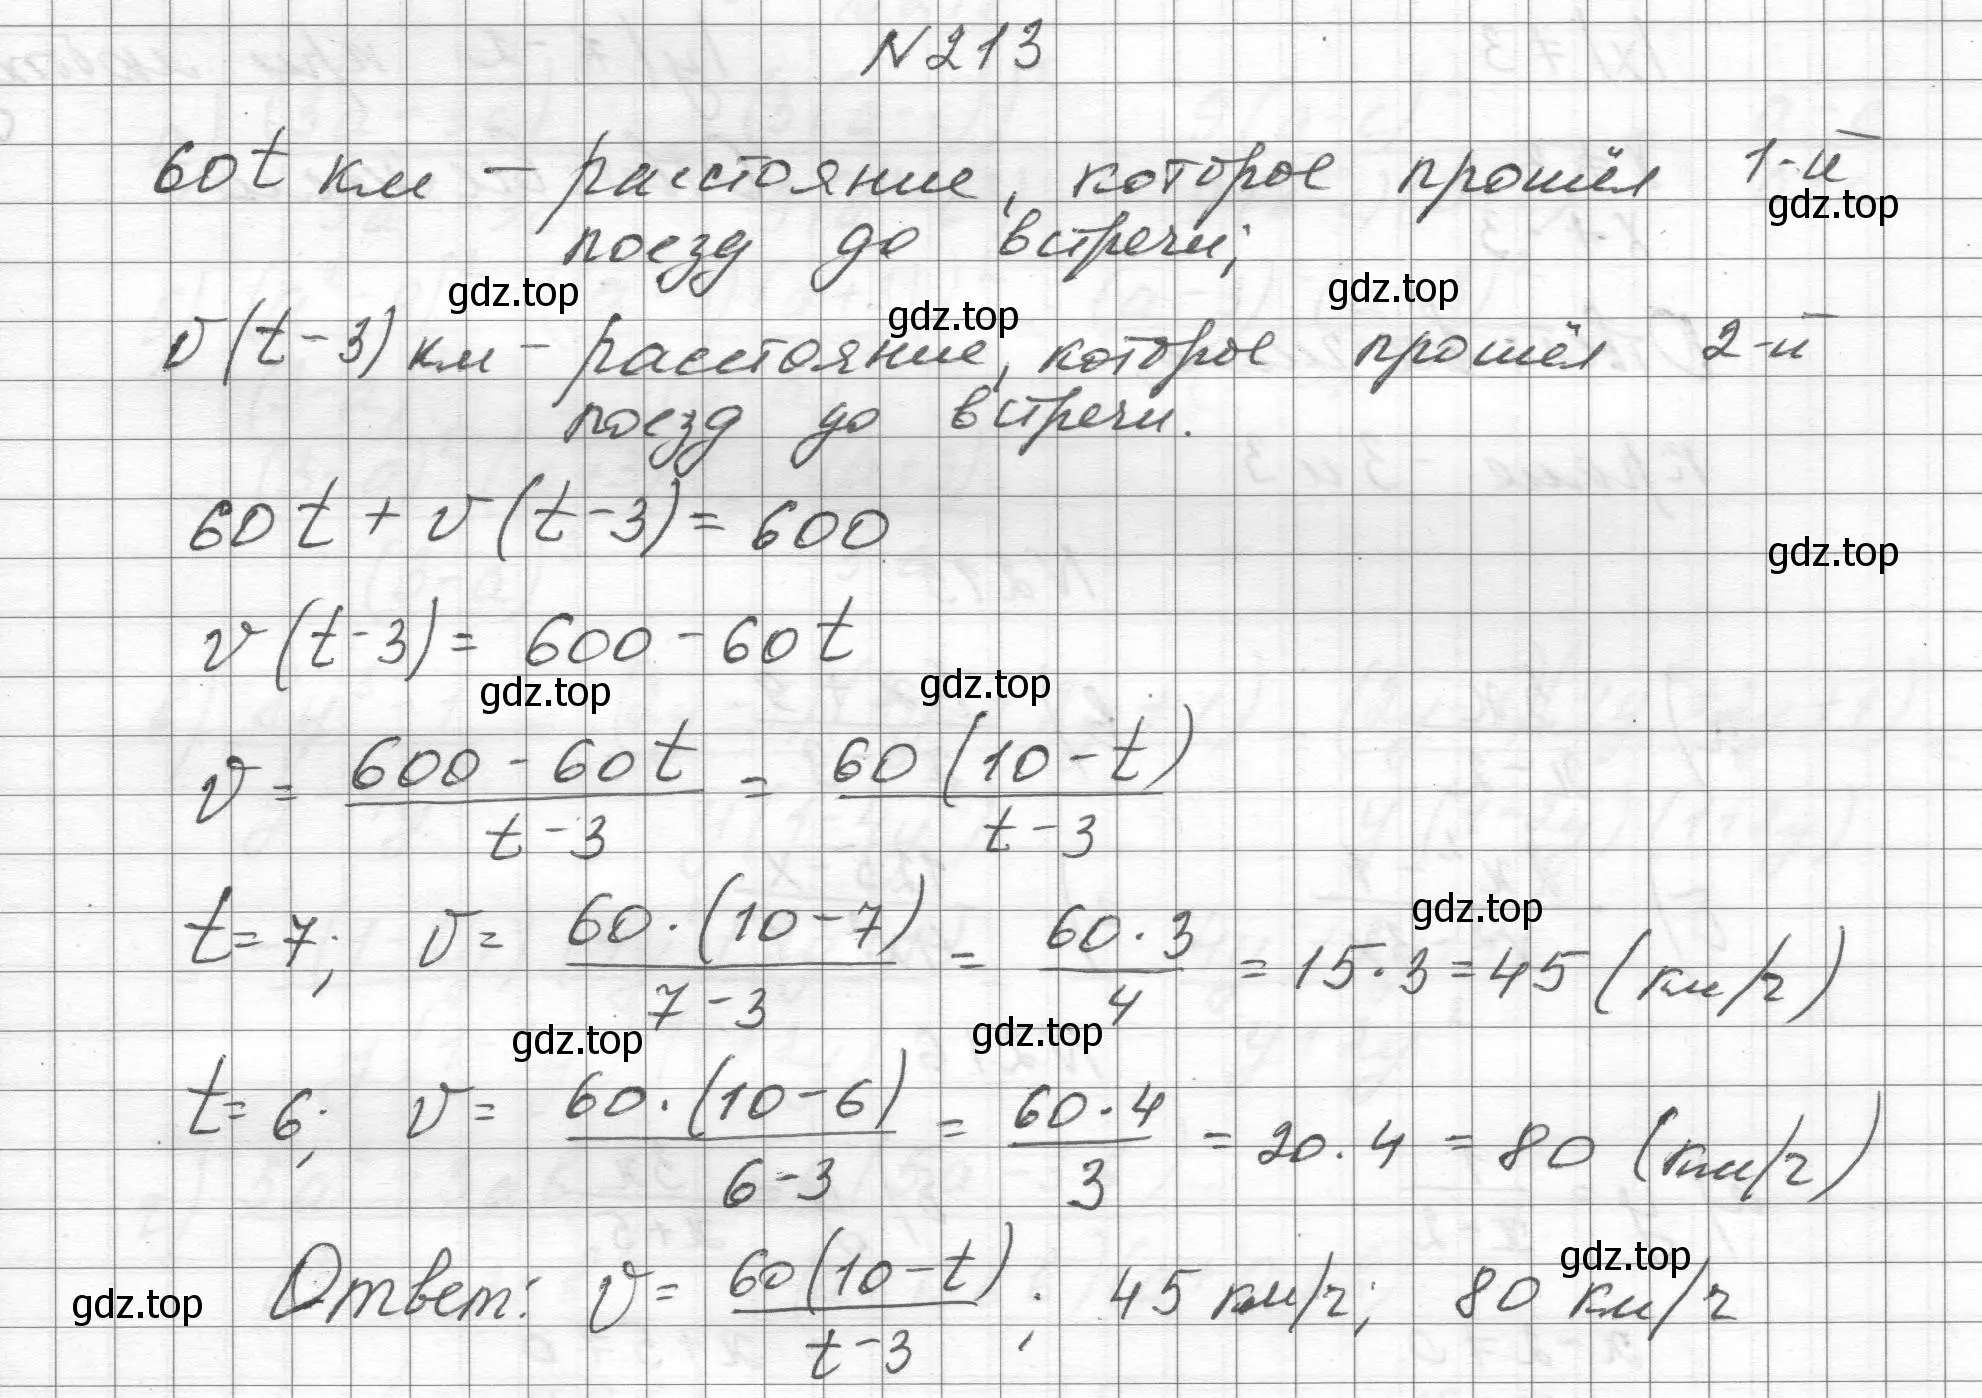 N 213
60t км – расстояние, которое прошёл 1-й
gdz.top
поезд до встречи;
gdz.top gdz.top gdz.top
v(t-3) км – расстояние, которое прошёл 2-й
поезд до встречи.
60t + v(t-3) = 600
gdz.top
v(t-3) = 600 - 60t
gdz.top gdz.top
v = (600 - 60t)/(t-3) = 60(10-t)/(t-3)
gdz.top
t = 7; v = 60·(10-7)/(7-3) = 60·3/4 = 15·3 = 45 (км/ч)
gdz.top gdz.top
t = 6; v = 60·(10-6)/(6-3) = 60·4/3 = 20·4 = 80 (км/ч)
gdz.top gdz.top
Ответ: v = 60(10-t)/(t-3); 45 км/ч; 80 км/ч